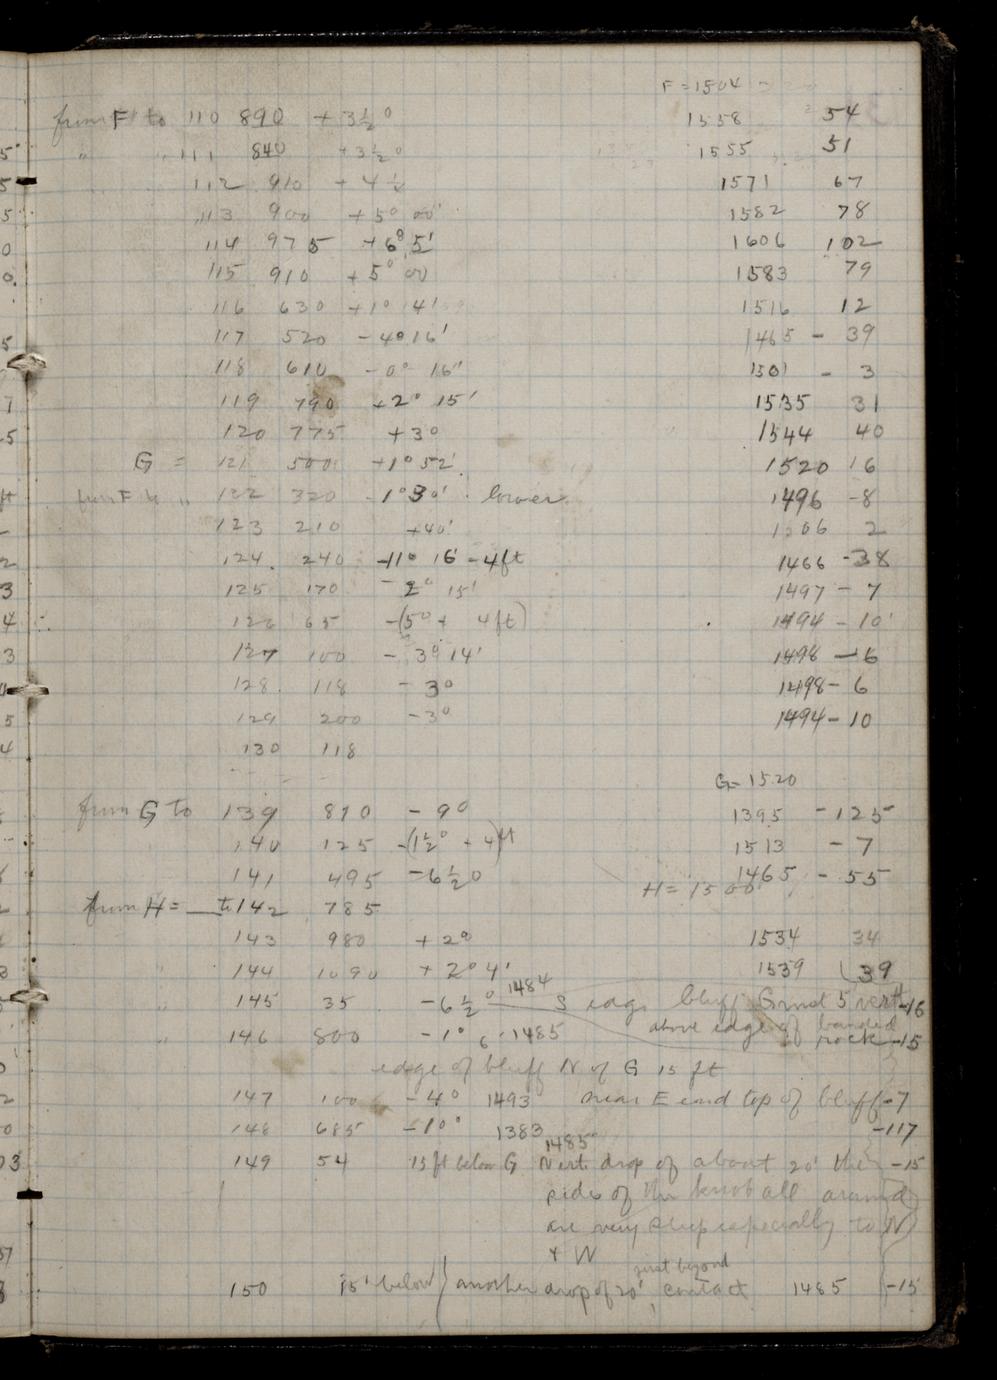 F = 1504
from F to 110 890 + 3½° 1558 54
" " 111 840 +3½° 1555 51
112 910 + 4½ 1571 67
113 900 + 5° 00' 1582 78
114 975 +6° 5' 1606 102
115 910 + 5° 00 1583 79
116 630 +1° 14' 1516 12
117 520 - 4° 16' 1465 - 39
118 610 - 0° 16' 1501 - 3
119 790 +2° 15' 1535 31
120 775 +3° 1544 40
G = 121 500 +1° 52' 1520 16
from F to " 122 320 -1° 30' lower 1496 -8
123 210 +40' 1506 2
124. 240 -11° 16' -4ft 1466 -38
125 170 - 2° 15' 1497 - 7
126 65 -(5° + 4ft) 1494 - 10'
127 100 - 3° 14' 1498 - 6
128. 118 - 3° 1498 - 6
129 200 - 3° 1494 - 10
130 118
G = 1520
from G to 139 810 - 9° 1395 - 125
140 125 -(1½° + 4)ft 1513 - 7
141 495 -6½° 1465 - 55
H = 1500
from H = to 142 785
143 980 + 2° 1534 34
144 1090 + 2° 4' 1539 39
" 145 35 -6½° 1484 S edge bluff G and 5 vert ft -16
" 146 800 -1° 6' 1485 above edge of banded rock -15
edge of bluff N of G 15 ft
147 100 - 4° 1493 near E end top of bluff -7
148 685 -10° 1383 -117
149 54 15 ft below G 1485 Vert. drop of about 20' the -15
sides of the knob all around
are very steep especially to N
+ W
150 15' below (another drop of 20', just beyond contact 1485 -15